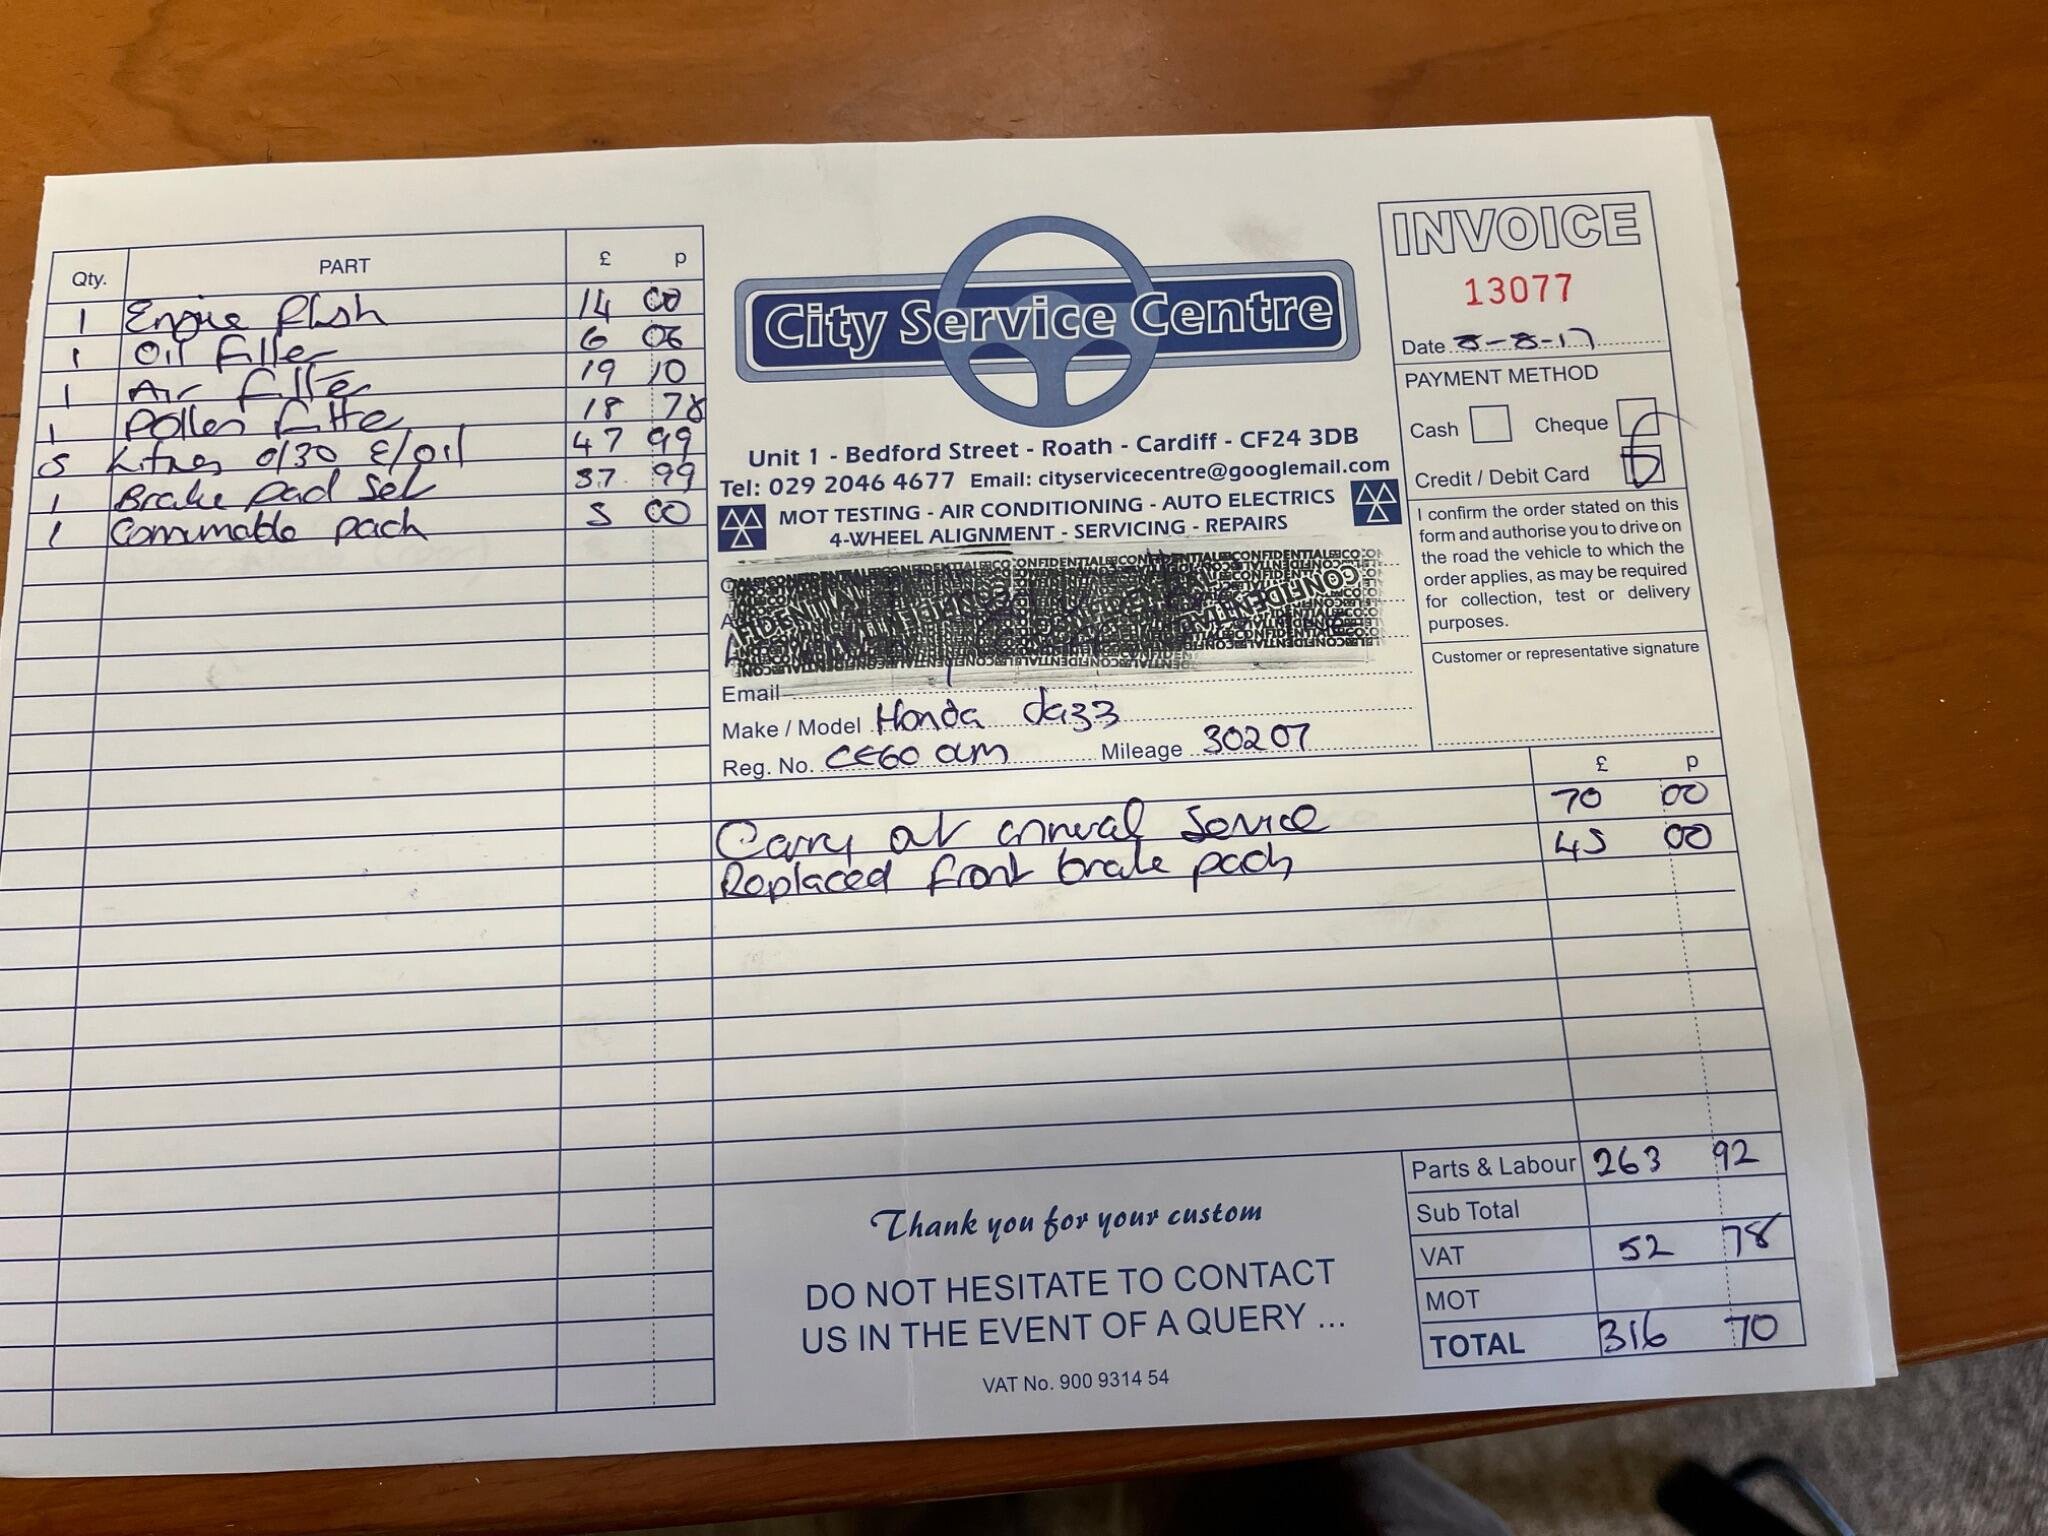 Qty. PART £ p
1 Engine flush 14 00
1 Oil filter 6 06
1 Air filter 19 10
1 Pollen filter 18 78
5 Litres 0/30 E/oil 47 99
1 Brake pad set 37 99
1 Consumable pack 5 00
City Service Centre
Unit 1 - Bedford Street - Roath - Cardiff - CF24 3DB
Tel: 029 2046 4677 Email: cityservicecentre@googlemail.com
MOT TESTING - AIR CONDITIONING - AUTO ELECTRICS
4-WHEEL ALIGNMENT - SERVICING - REPAIRS
CONFIDENTIAL
Email
Make / Model Honda Jazz
Reg. No. CE60 Mileage 30207
INVOICE
13077
Date 8-8-17
PAYMENT METHOD
Cash Cheque
Credit / Debit Card
I confirm the order stated on this
form and authorise you to drive on
the road the vehicle to which the
order applies, as may be required
for collection, test or delivery
purposes.
Customer or representative signature
£ p
Carry out annual service 70 00
Replaced front brake pads 45 00
Thank you for your custom
DO NOT HESITATE TO CONTACT
US IN THE EVENT OF A QUERY ...
VAT No. 900 9314 54
Parts & Labour 263 92
Sub Total
VAT 52 78
MOT
TOTAL 316 70